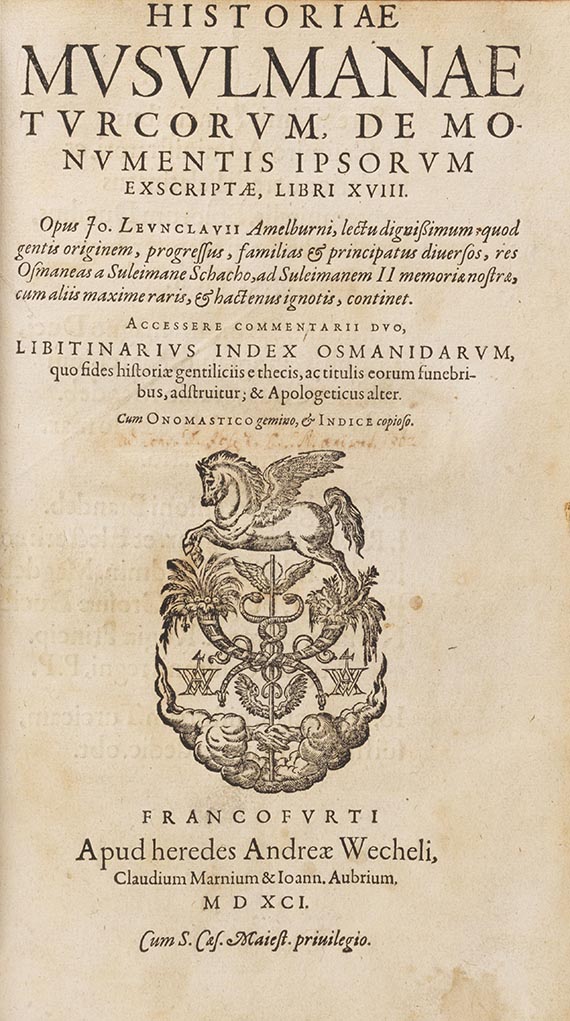 HISTORIAE
MVSVLMANAE
TVRCORVM, DE MO-
NVMENTIS IPSORVM
EXSCRIPTÆ, LIBRI XVIII.
Opus Jo. LEVNCLAVII Amelburni, lectu dignißimum: quod
gentis originem, progreſſus, familias & principatus diuerſos, res
Oſmaneas a Suleimane Schacho, ad Suleimanem II memoriæ noſtræ,
cum aliis maxime raris, & hactenus ignotis, continet.
ACCESSERE COMMENTARII DVO,
LIBITINARIVS INDEX OSMANIDARVM,
quo fides hiſtoriæ gentiliciis e thecis, ac titulis eorum funebri-
bus, adſtruitur; & Apologeticus alter.
Cum ONOMASTICO gemino, & INDICE copioſo.
FRANCOFVRTI
Apud heredes Andreæ Wecheli,
Claudium Marnium & Ioann. Aubrium,
M D XCI.
Cum S. Cæſ. Maieſt. priuilegio.